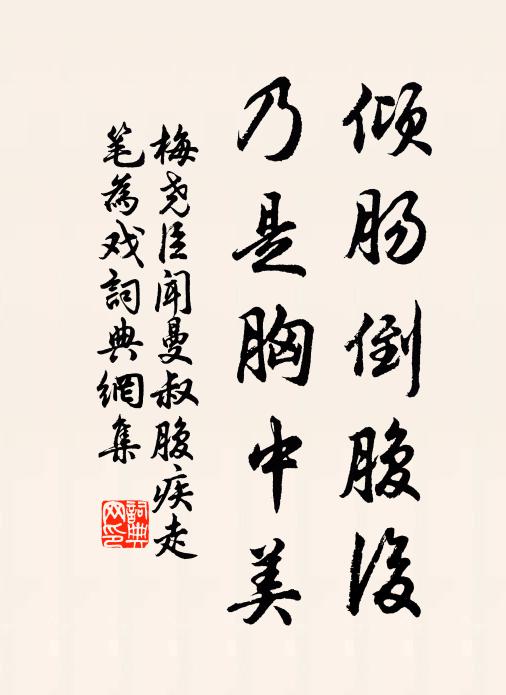 倾肠倒腹后
乃是胸中美
梅尧臣闻曼叔腹疾走
笔为戏詞典網集
詞典
网印